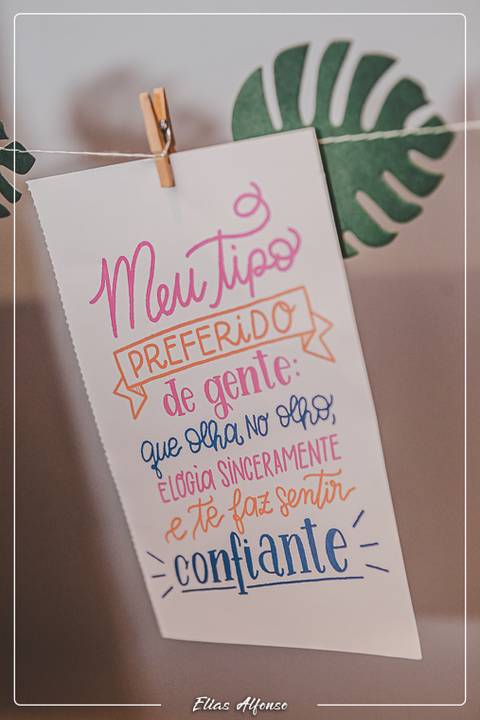 Meu Tipo
PREFERIDO
de gente:
que olha NO olho,
ELOGIA SINCERAMENTE
e te faz sentir
confiante
Elias Alfonso